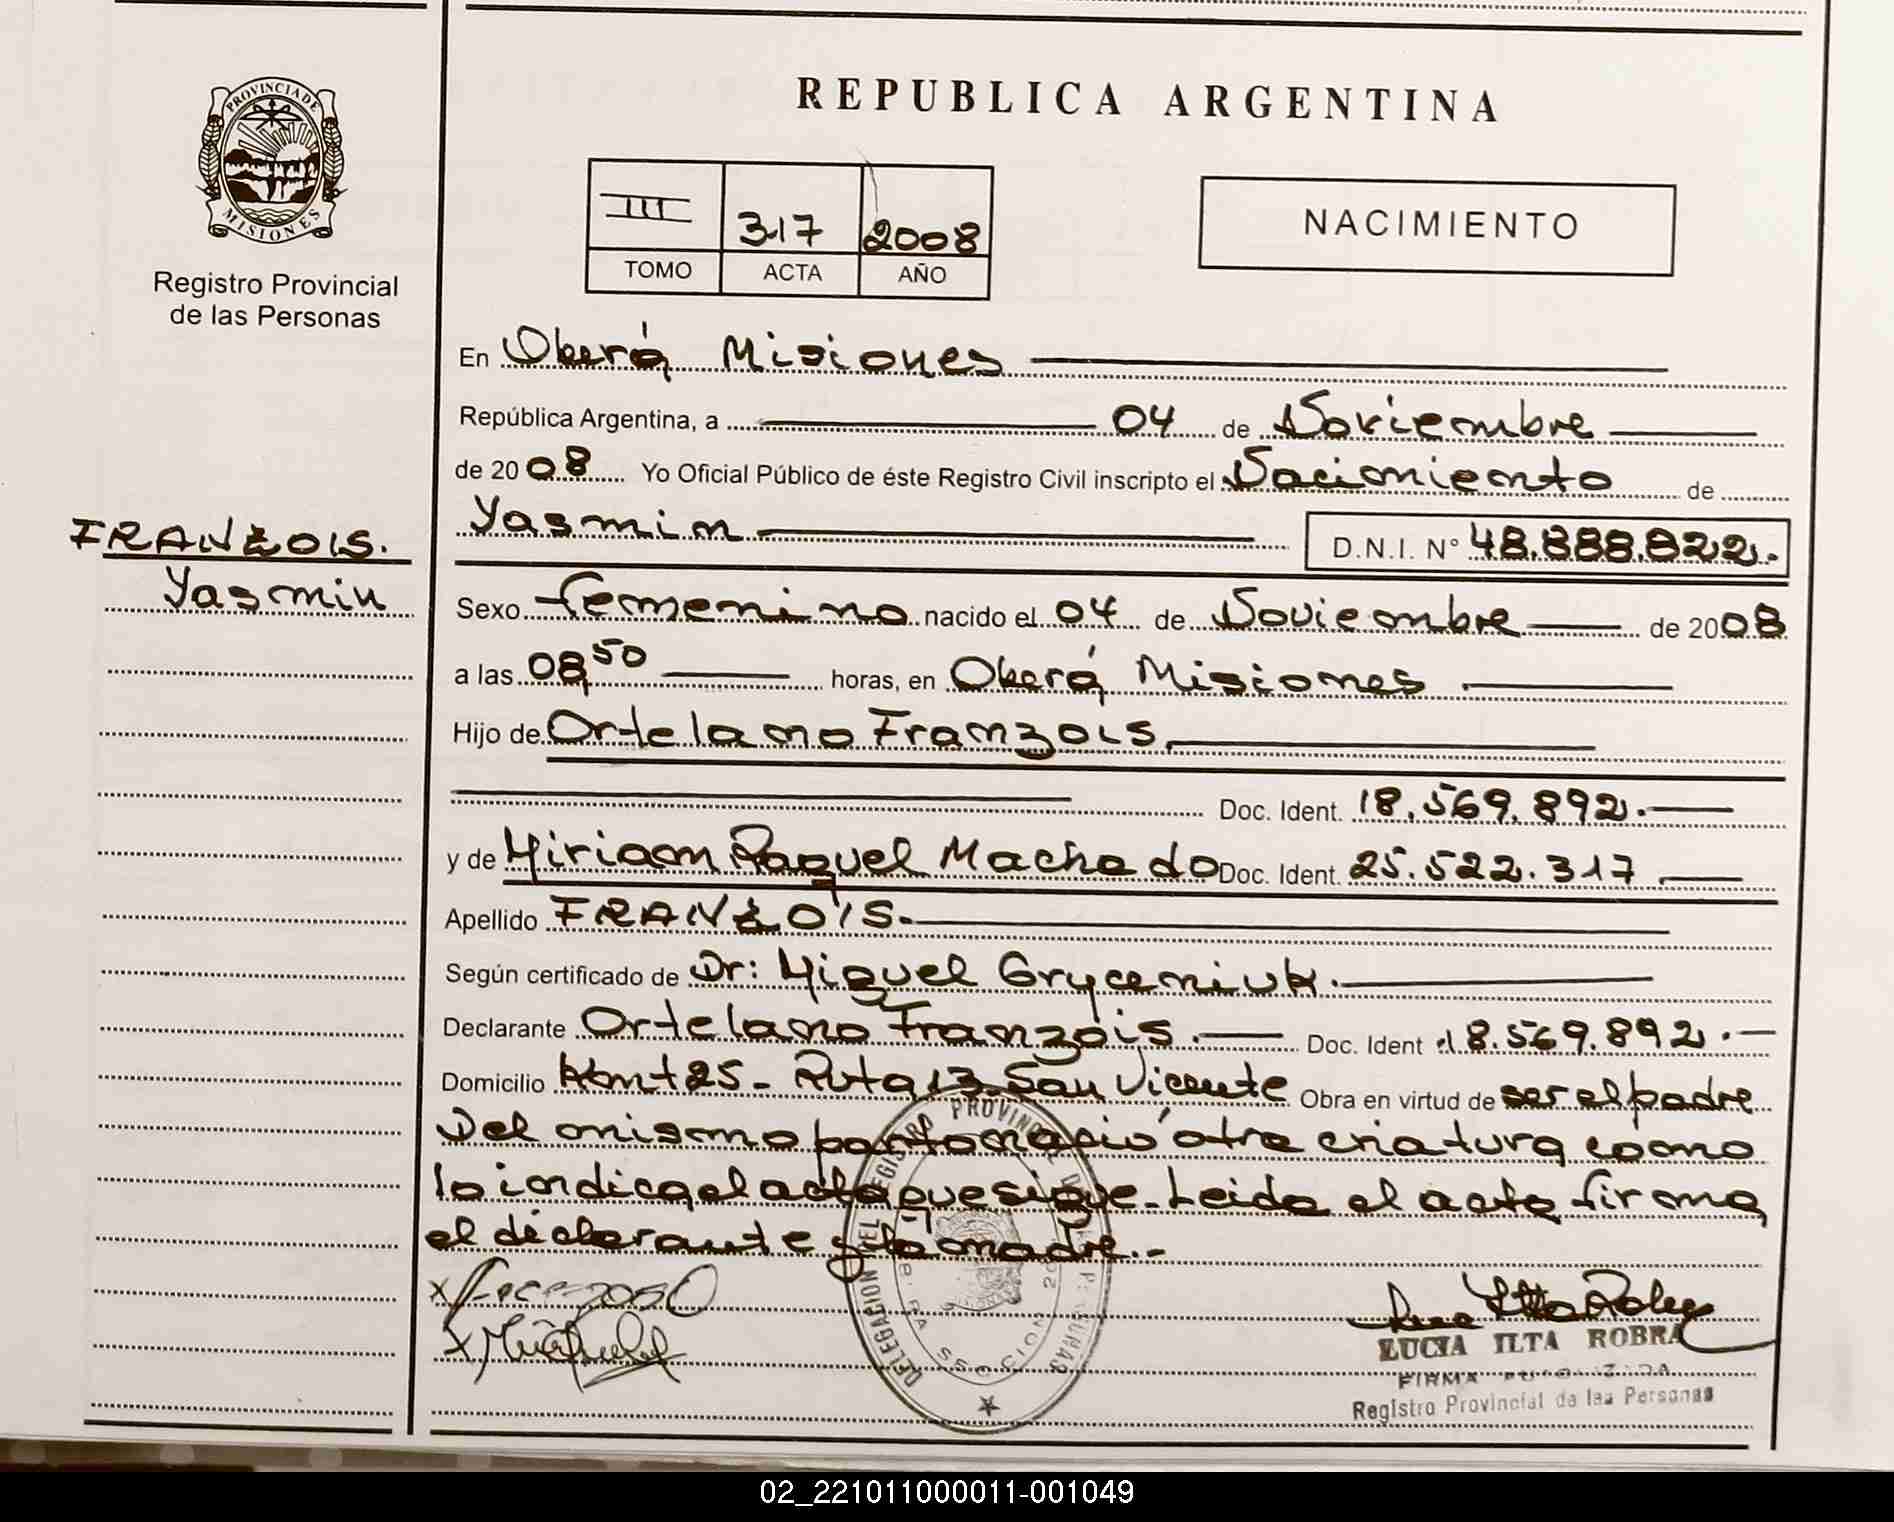 REPUBLICA ARGENTINA
PROVINCIA DE
MISIONES
Registro Provincial
de las Personas
III 317 2008
TOMO ACTA AÑO
NACIMIENTO
En Oberá Misiones
República Argentina, a 04 de Noviembre
de 2008 Yo Oficial Público de éste Registro Civil inscripto el Nacimiento de
Yasmin D.N.I. N° 48.888.822.
FRANZOIS.
Yasmin
Sexo femenino nacido el 04 de Noviembre de 2008
a las 08,50 horas, en Oberá Misiones
Hijo de Ortelano Franzois
Doc. Ident. 18.569.892.
y de Miriam Raquel Machado Doc. Ident. 25.522.317
Apellido FRANZOIS.
Según certificado de Dr: Miguel Gryceniuk.
Declarante Ortelano Franzois. Doc. Ident 18.569.892.
Domicilio Kmt 25- Ruta 13 San Vicente Obra en virtud de ser el padre
Del mismo parto nació otra criatura como
lo indica el acta que sigue. Leida el acta firma
el declarante y la madre.-
DELEGACION DEL REGISTRO PROVINCIAL DE LAS PERSONAS
SECCION
LUCIA ILTA ROBRA
FIRMA
Registro Provincial de las Personas
02_221011000011-001049